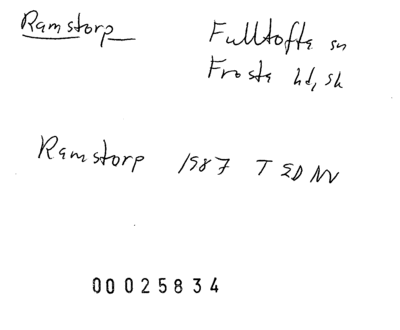 Ramstorp
Fulltofta sn
Frosta hd, sk
Ramstorp 1987 T 2D NV
00025834